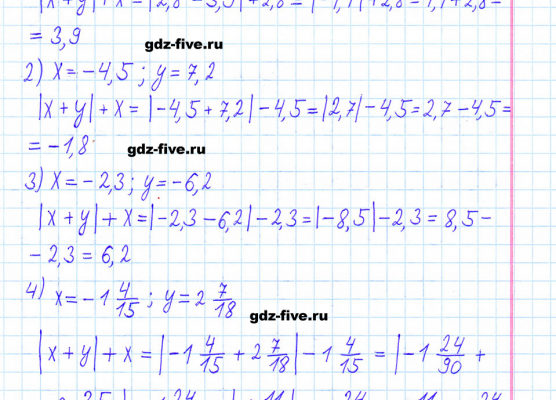 |x+y|+x=|2,8-3,9|+2,8=|-1,1|+2,8=1,1+2,8=
= 3,9
gdz-five.ru
2) x=-4,5; y=7,2
|x+y|+x=|-4,5+7,2|-4,5=|2,7|-4,5=2,7-4,5=
=-1,8
gdz-five.ru
3) x=-2,3; y=-6,2
|x+y|+x=|-2,3-6,2|-2,3=|-8,5|-2,3=8,5-
-2,3=6,2
4) x=-1 4/15; y=2 7/18
gdz-five.ru
|x+y|+x=|-1 4/15+2 7/18|-1 4/15=|-1 24/90+